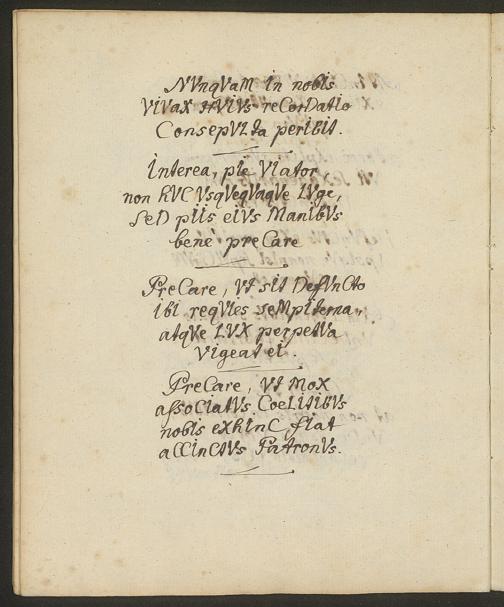 NVnqVaM in nobIs
VIVaX HVIVs reCorDatIo
ConsepVLta perIbIt.
Interea, pIe VIator
non hVC VsqVeqVaqVe LVge,
seD pIIs eIVs ManIbVs
benè preCare
PreCare, Vt sIt DefVnCto
IbI reqVIes seMpIterna,
atqVe LVX perpetVa
VIgeat eI.
PreCare, Vt MoX
assoCIatVs CoeLItIbVs
nobIs exhInC fIat
aCCInCtVs PatronVs.